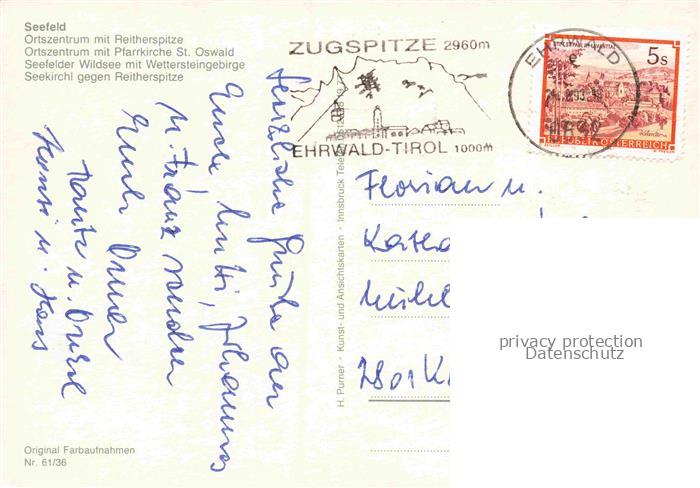 Seefeld
Ortszentrum mit Reitherspitze
Ortszentrum mit Pfarrkirche St. Oswald
Seefelder Wildsee mit Wettersteingebirge
Seekirchl gegen Reitherspitze
ZUGSPITZE 2960m
EHRWALD-TIROL 1000m
EHRWALD
5s
REPUBLIK ÖSTERREICH
Herzliche Grüße an
Euch Mutti, Johannes
u. Franz senden
Euch Omer
Tante u. Onkel
Hansi u. Hans
H. Purner · Kunst- und Ansichtskarten · Innsbruck
Florian u.
Katha
Mühl
2801 K
privacy protection
Datenschutz
Original Farbaufnahmen
Nr. 61/36